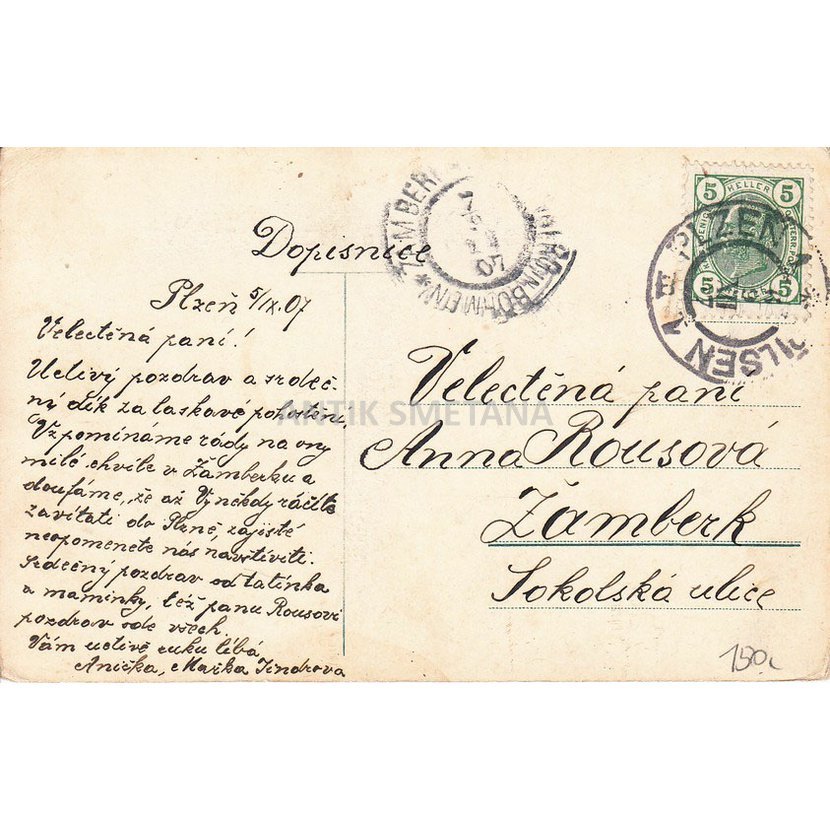 Dopisnice
Plzeň 5/IX.07
Velectěná paní!
Uctivý pozdrav a srdeč-
ný dík za laskavé pohoštění.
Vzpomínáme rády na ony
milé chvíle v Žamberku a
doufáme, že až Vy někdy ráčíte
zavítati do Plzně, zajisté
neopomenete nás navštíviti.
Srdečný pozdrav od tatínka
a maminky, též panu Rousovi
pozdrav ode všech.
Vám uctivě ruku líbá
Anička, Mařka Jindrova
Velectěná paní
Anna Rousová
Žamberk
Sokolská ulice
5 HELLER 5
5 5
PLZEŇ 1
PILSEN 1
07
BÖHMEN
ANTIK SMETANA
150,